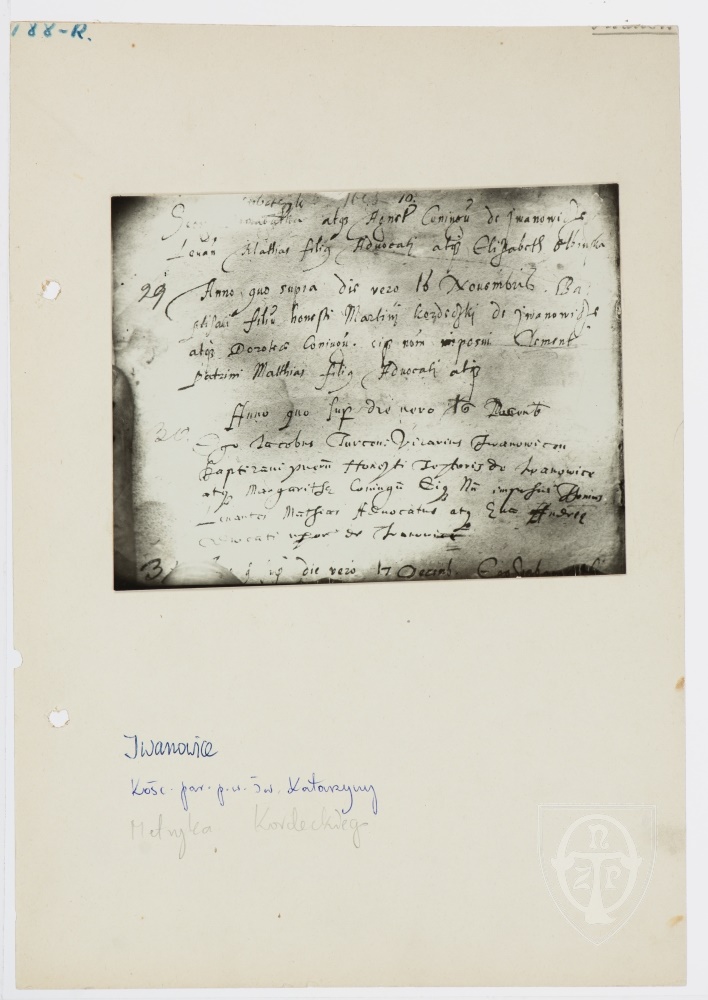 188-R.
10.
atq Agnet Coniugū de Iwanowicze
Leuan Mathias filiq Aduocati atq Elizabeth
29 Anno quo supra die vero 16 Nouembris. Ba
ptisaui filiū honesti Martini Kordeczki de Iwanowicze
atq Dorotea Coniugū. eiq nom imposui Clement
patrini Matthias filiq Aduocati atq
30. Anno quo sup die vero 16 Decemb
Ego Iacobus Turconi Vicarius Iwanowicen
Baptizaui puerū Honesti Textoris de Iwanowice
atq Margarithę Coniugū Eiq Nn imposui Thomas
Leuantes Mathias Aduocatus atq Eua Andreę
Aduocati uxor de Iwanowice
3 die vero 17 Decemb.
Iwanowice
Kość. par. p.w. św. Katarzyny
Metryka Kordeckiego
N
Z P